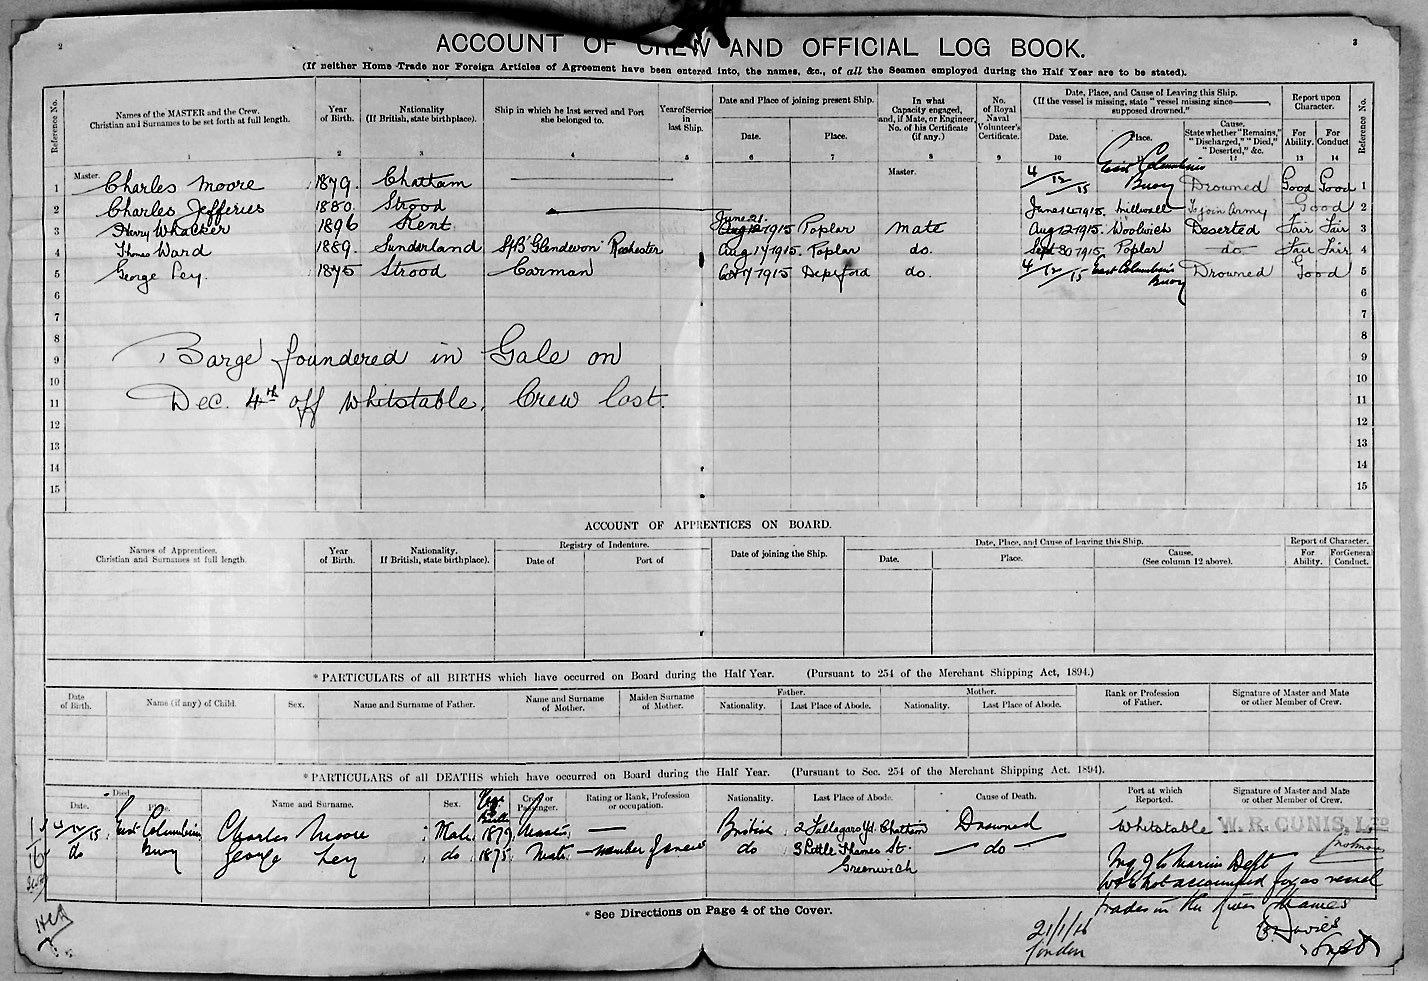 2
3
ACCOUNT OF CREW AND OFFICIAL LOG BOOK.
(If neither Home-Trade nor Foreign Articles of Agreement have been entered into, the names, &c., of all the Seamen employed during the Half Year are to be stated).
Reference No. Names of the MASTER and the Crew. Christian and Surnames to be set forth at full length. Year of Birth. Nationality (If British, state birthplace). Ship in which he last served and Port she belonged to. Year of Service in last Ship. Date and Place of joining present Ship. Date. Place. In what Capacity engaged, and, if Mate, or Engineer, No. of his Certificate (if any.) No. of Royal Naval Volunteer's Certificate. Date, Place, and Cause of Leaving this Ship. (If the vessel is missing, state "vessel missing since ——, supposed drowned.") Date. Place. Cause. State whether "Remains," "Discharged," "Died," "Deserted," &c. Report upon Character. For Ability. For Conduct Reference No.
1 2 3 4 5 6 7 8 9 10 12 13 14
1 Master. Charles Moore 1879. Chatham Master. 4/12/15 East Columbia Buoy Drowned Good Good 1
2 Charles Jefferies 1880. Strood June 14 1915. Millwall To join Army Good 2
3 Harry Whalker 1896 Kent June 21. Aug 12 1915 Poplar mate Aug 12 1915 Woolwich Deserted Fair Fair 3
4 Thomas Ward 1889. Sunderland S/B "Glendevon" Rochester Aug 17 1915. Poplar do. Sept 30 1915 Poplar do Fair Fair 4
5 George Ley. 1875 Strood Carman Oct 7 1915 Deptford do. 4/12/15 East Columbia Buoy Drowned Good 5
6 6
7 7
8 8
9 Barge foundered in Gale on 9
10 10
11 Dec. 4th off Whitstable, Crew lost. 11
12 12
13 13
14 14
15 15
ACCOUNT OF APPRENTICES ON BOARD.
Names of Apprentices. Christian and Surnames at full length. Year of Birth. Nationality. If British, state birthplace). Registry of Indenture. Date of Port of Date of joining the Ship. Date, Place, and Cause of leaving this Ship. Date. Place. Cause. (See column 12 above). Report of Character. For Ability. For General Conduct.
* PARTICULARS of all BIRTHS which have occurred on Board during the Half Year. (Pursuant to 254 of the Merchant Shipping Act, 1894.)
Date of Birth. Name (if any) of Child. Sex. Name and Surname of Father. Name and Surname of Mother. Maiden Surname of Mother. Father. Nationality. Last Place of Abode. Mother. Nationality. Last Place of Abode. Rank or Profession of Father. Signature of Master and Mate or other Member of Crew.
* PARTICULARS of all DEATHS which have occurred on Board during the Half Year. (Pursuant to Sec. 254 of the Merchant Shipping Act. 1894).
Died Date. Place. Name and Surname. Sex. Year of Birth Crew or Passenger. Rating or Rank, Profession or occupation. Nationality. Last Place of Abode. Cause of Death. Port at which Reported. Signature of Master and Mate or other Member of Crew.
4/12/15 East Columbia Buoy Charles Moore Male 1879 Master British Chatham Drowned Whitstable W. R. CUNIS, LTD
do George Ley do 1875 Mate member of crew do 3 Little Thames St. Greenwich do
not accounted for as vessel
trades in the river Thames
* See Directions on Page 4 of the Cover.
21/1/16
London
Davies